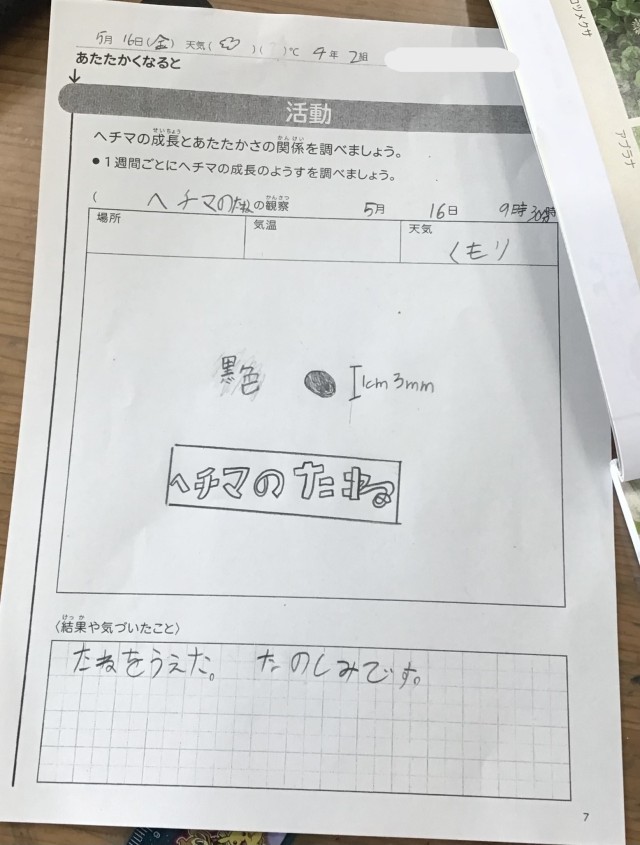 5月16日(金) 天気( )( )℃ 4年2組
あたたかくなると
活動
ヘチマの成長とあたたかさの関係を調べましょう。
●1週間ごとにヘチマの成長のようすを調べましょう。
( ヘチマのたねの観察 5月 16日 9時30時
場所 気温 天気
くもり
黒色 1cm3mm
ヘチマのたね
〈結果や気づいたこと〉
たねをうえた。 たのしみです。
7
アブラナ